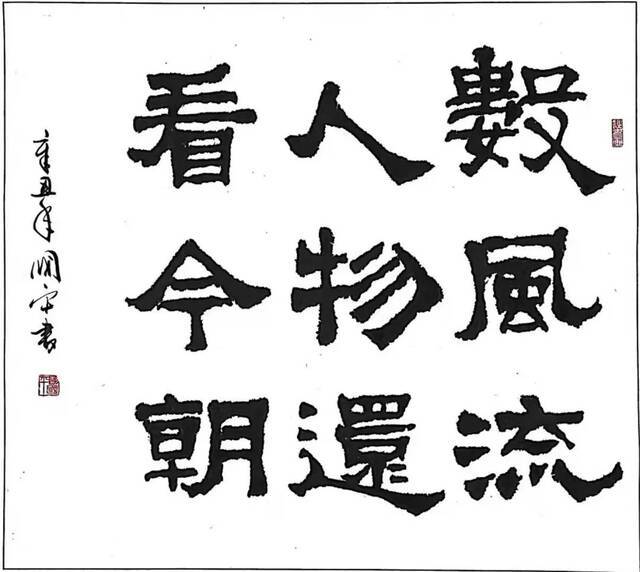 數風流
人物還
看今朝
辛丑年